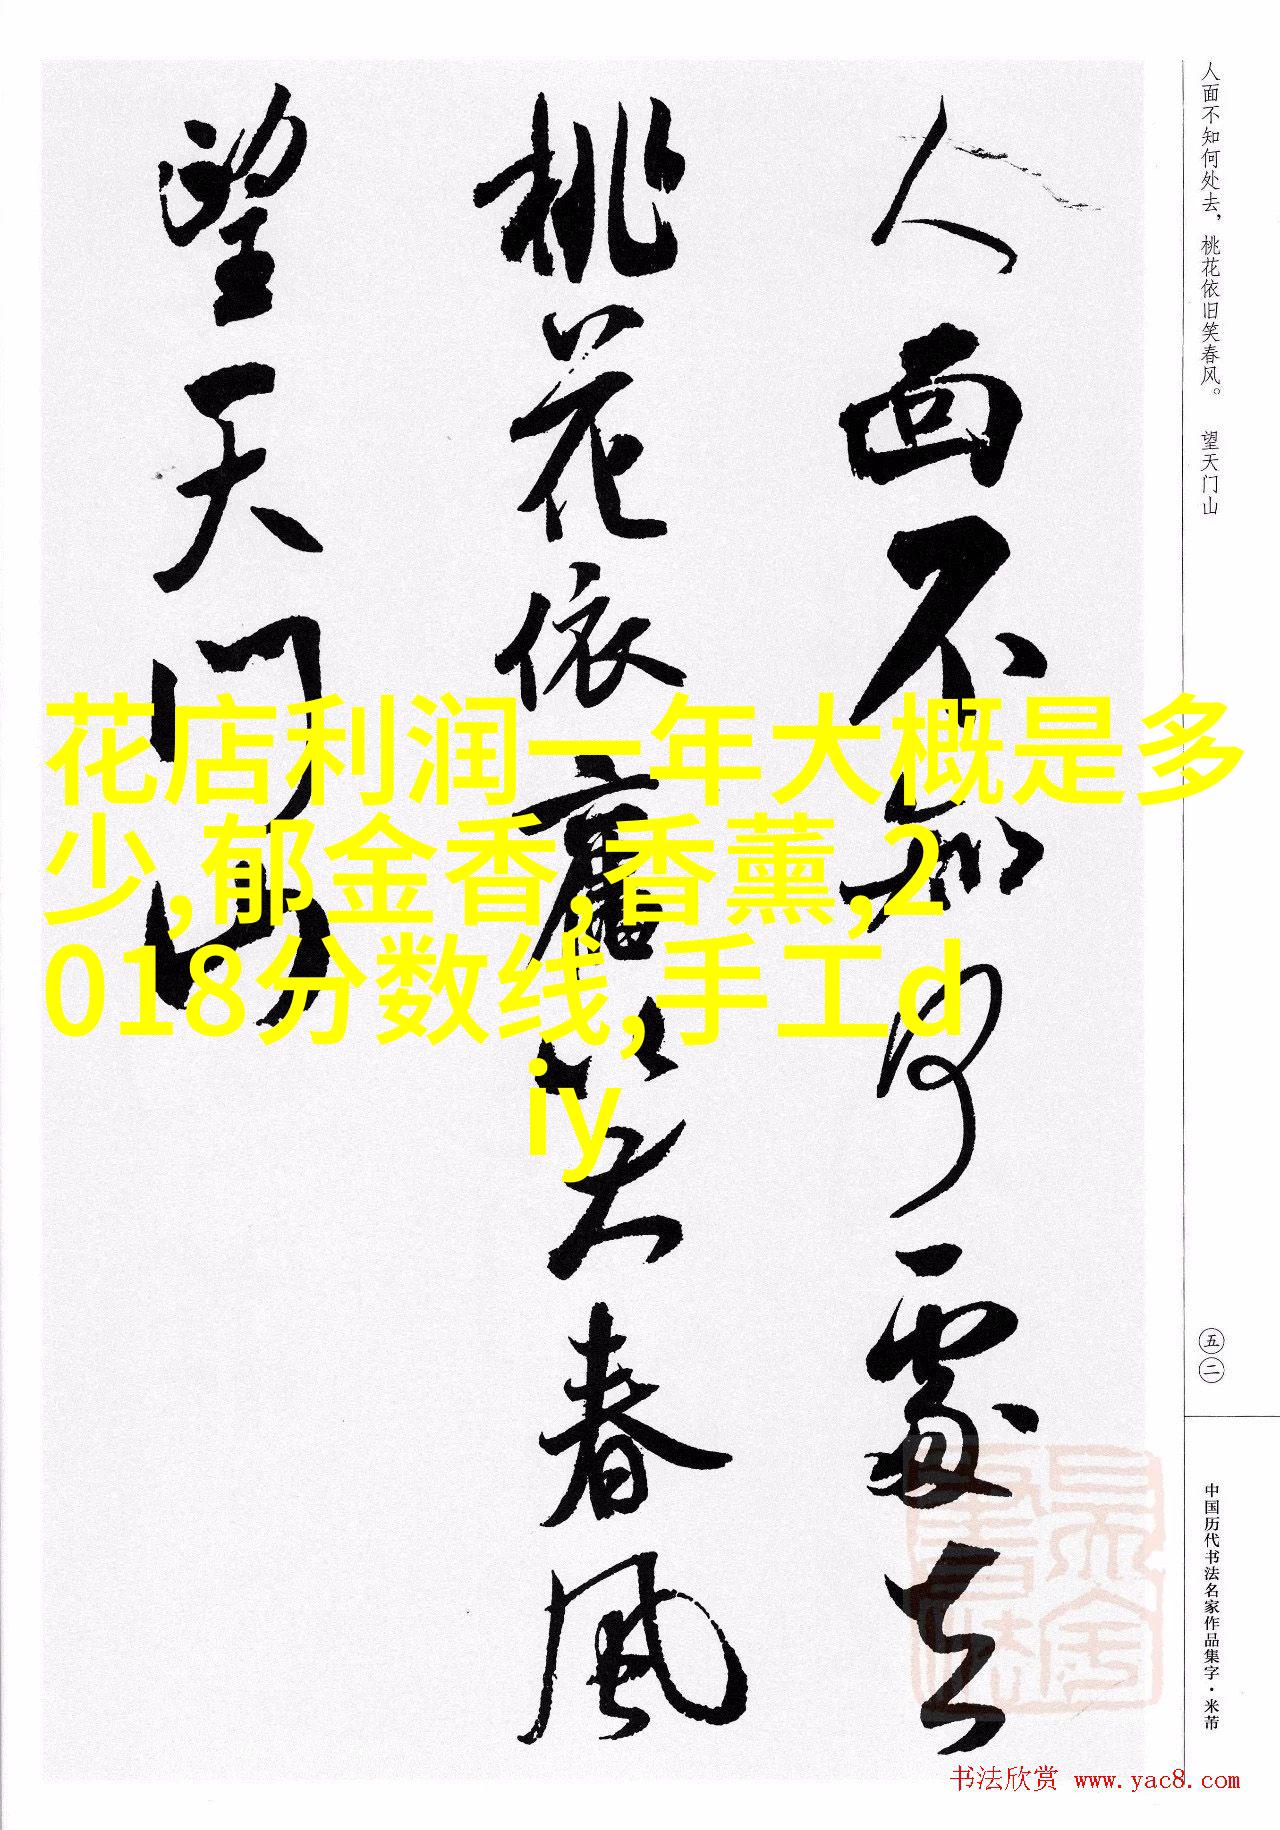 人面不知何處去
桃花依舊笑春風
望天门山
人面不知何处去，桃花依旧笑春风。 望天门山
花店利润一年大概是多
少,郁金香,香薰,2
018分数线,手工d
iy
五二
中国历代书法名家作品集字·米芾
书法欣赏 www.yac8.com